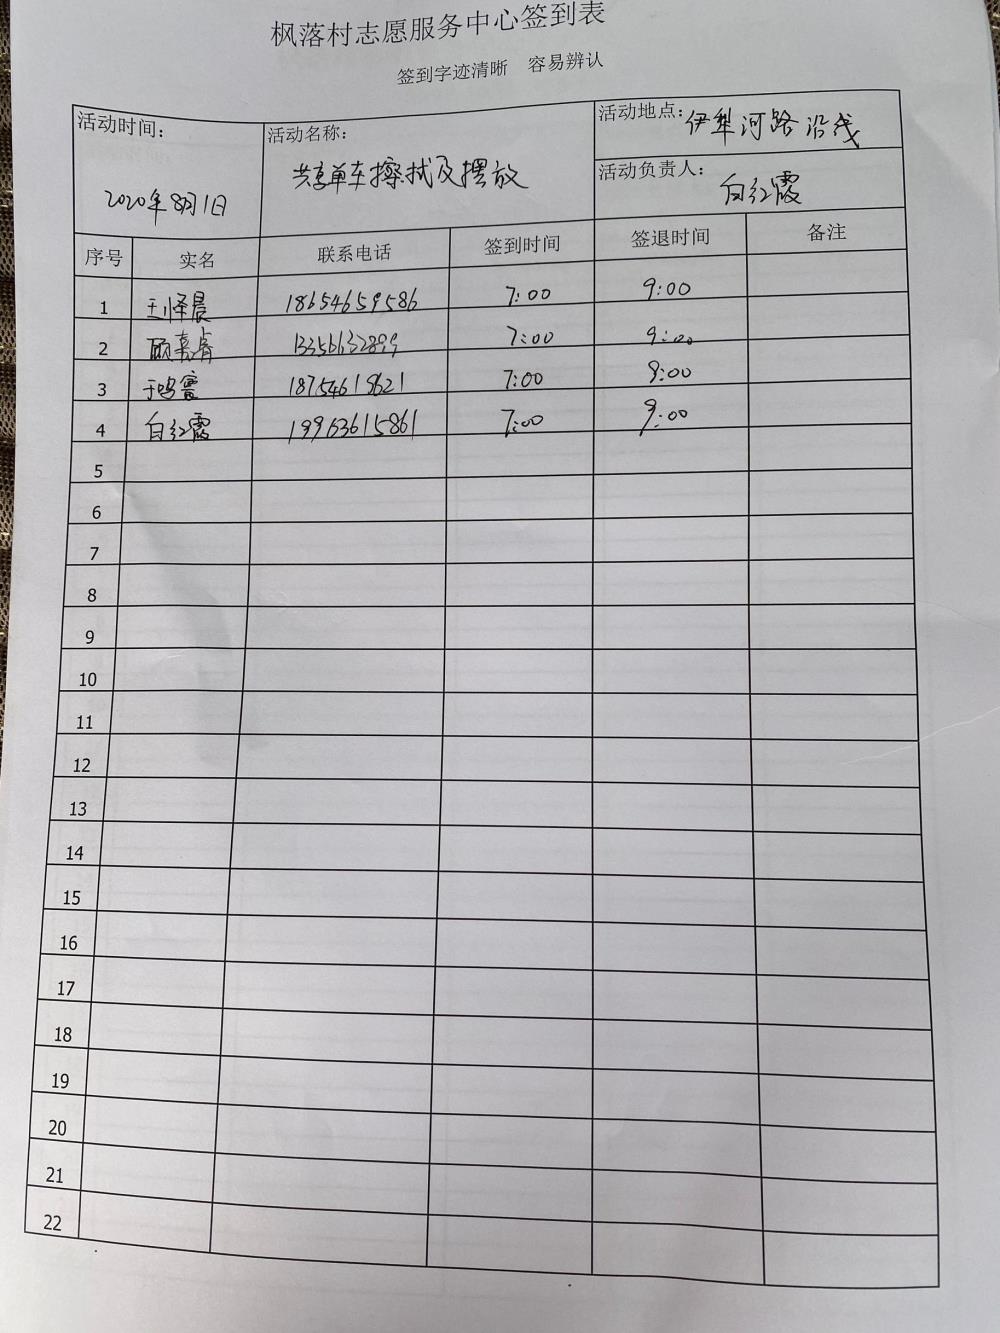 枫落村志愿服务中心签到表
签到字迹清晰 容易辨认
活动时间： 2020年8月1日
活动名称： 共享单车擦拭及摆放
活动地点： 伊犁河路沿线
活动负责人： 白红霞
序号 实名 联系电话 签到时间 签退时间 备注
1 王怿晨 18654659586 7:00 9:00
2 顾嘉睿 7:00 9:00
3 18754619621 7:00 9:00
4 白红霞 19963615861 7:00 9:00
5
6
7
8
9
10
11
12
13
14
15
16
17
18
19
20
21
22